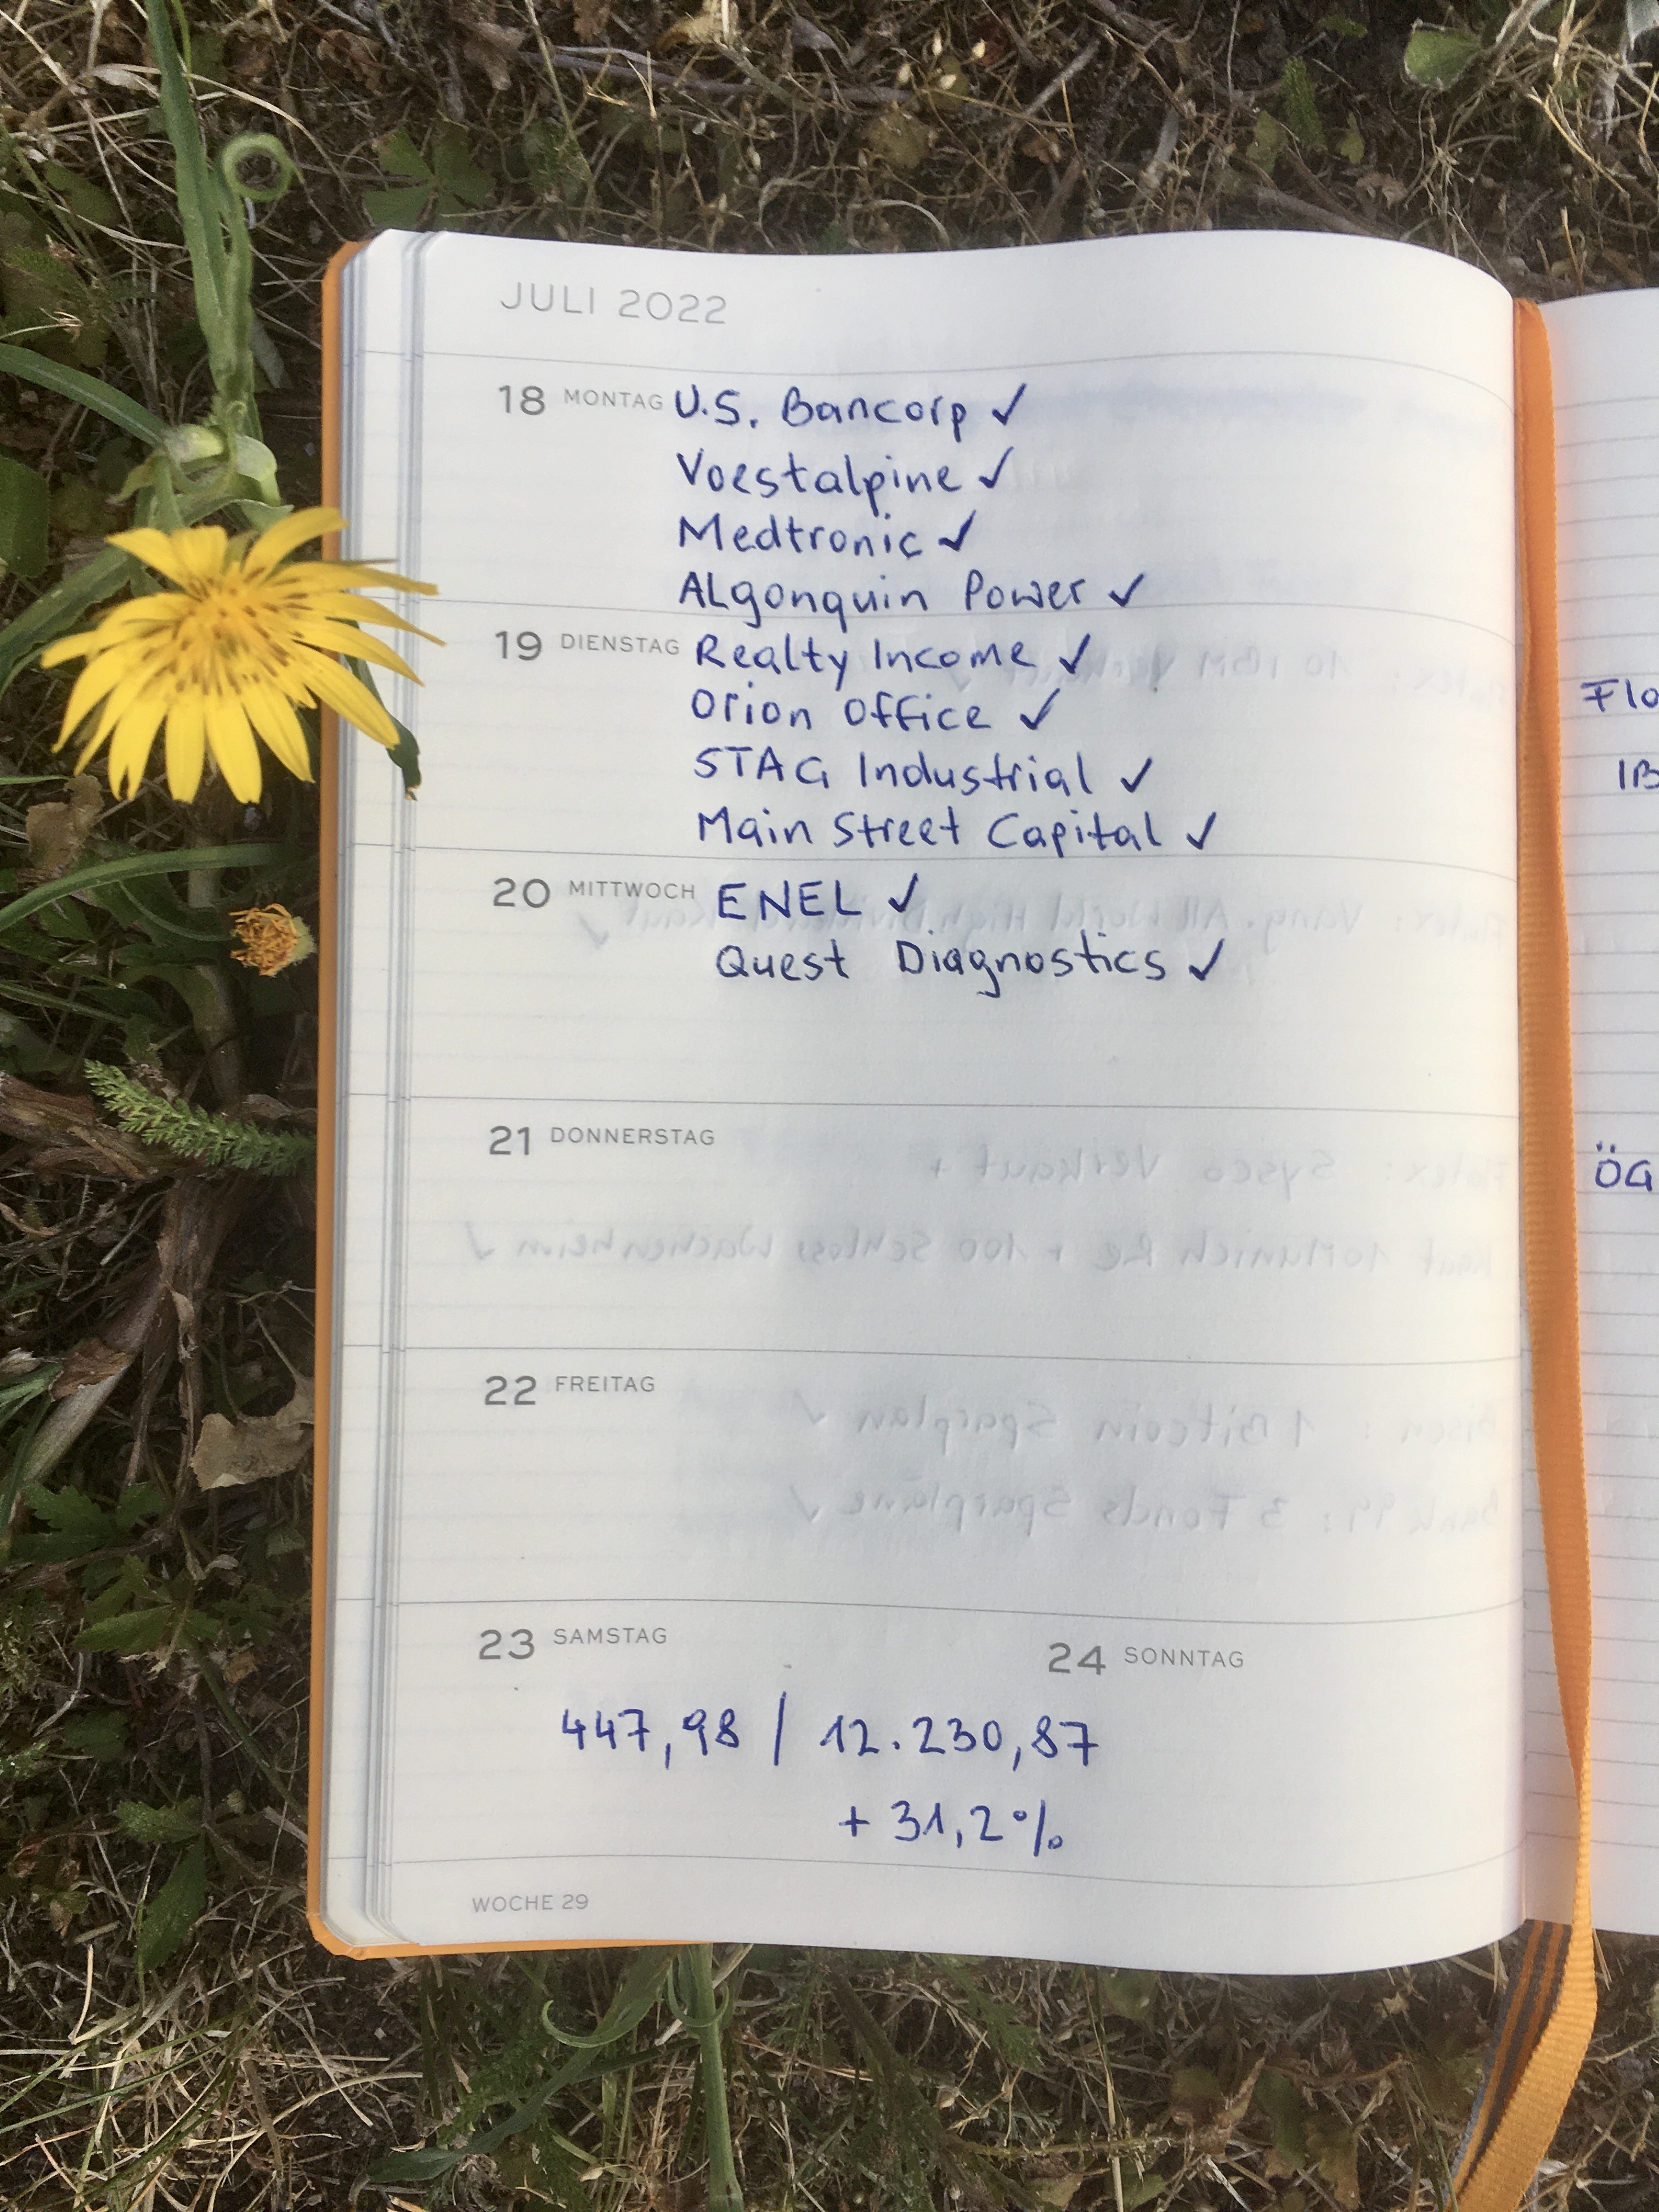 JULI 2022
18 MONTAG U.S. Bancorp ✓
Voestalpine ✓
Medtronic ✓
ALgonquin Power ✓
19 DIENSTAG Realty Income ✓
Orion Office ✓
STAG Industrial ✓
Main Street Capital ✓
20 MITTWOCH ENEL ✓
Quest Diagnostics ✓
21 DONNERSTAG
22 FREITAG
23 SAMSTAG
24 SONNTAG
447,98 / 12.230,87
+ 31,2%
WOCHE 29
Flo
IB
ÖG